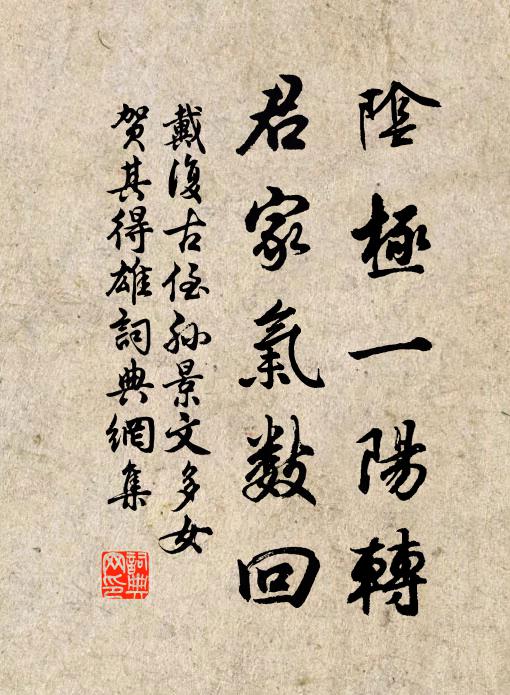 陰極一陽轉
君家氣數回
戴復古侄孫景文多女
賀其得雄詞典網集
詞典網印